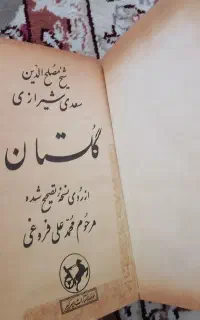 شیخ مصلح الدین
سعدی شیرازی
گلستان
از روی نسخهٔ تصحیح شده
مرحوم محمد علی فروغی